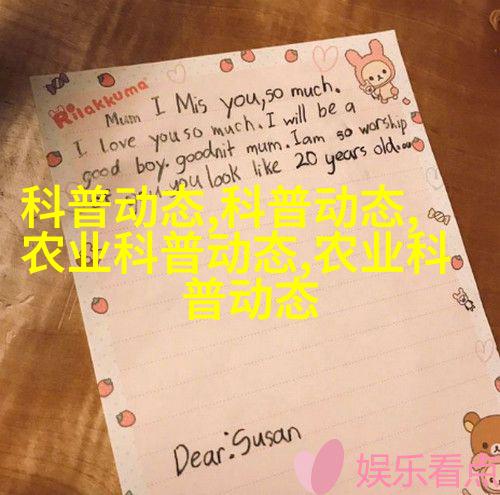 Rilakkuma
Mum I Mis you,so much.
I love you so much. I will be a
good boy. goodnit mum. I am so worship
you you look like 20 years old...
科普动态,科普动态,
农业科普动态,农业科
普动态
Dear:Susan
娱乐看点